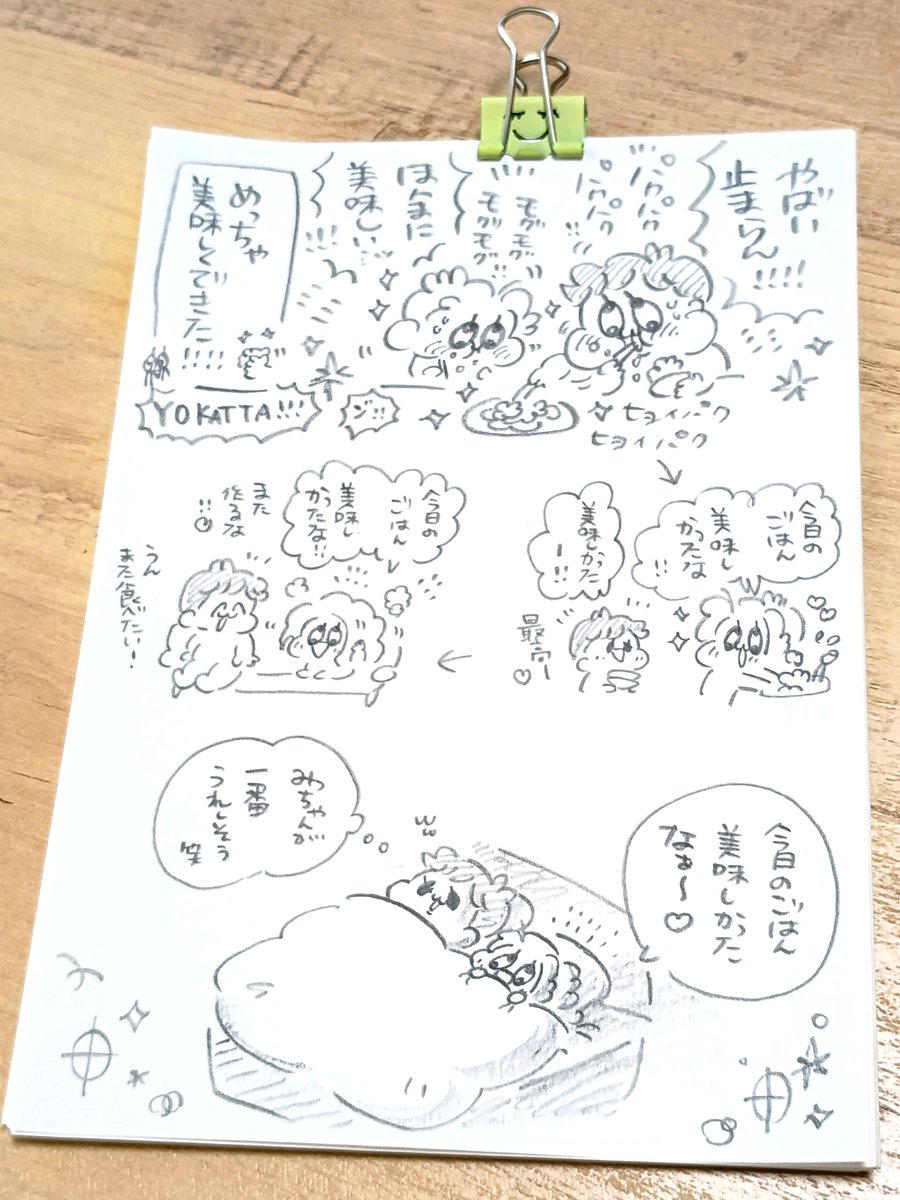 やばい
止まらん
!!!!
パクパク
パクパク
!!
モグモグ
モグモグ
!!
ほんまに
美味しい
!!!
めっちゃ
美味しくできた
!!!!
YOKATTA!!!
ジ!!
ヒョイパク
ヒョイパク
今日の
ごはん
美味し
かったな
!!
美味しかった
ー!!
最高ー♡
今日の
ごはん
美味し
かったな!!
また
作るな
!!
うん
また食べたいー!
今日のごはん
美味しかった
なぁ〜♡
みっちゃんが
一番
うれしそう
笑